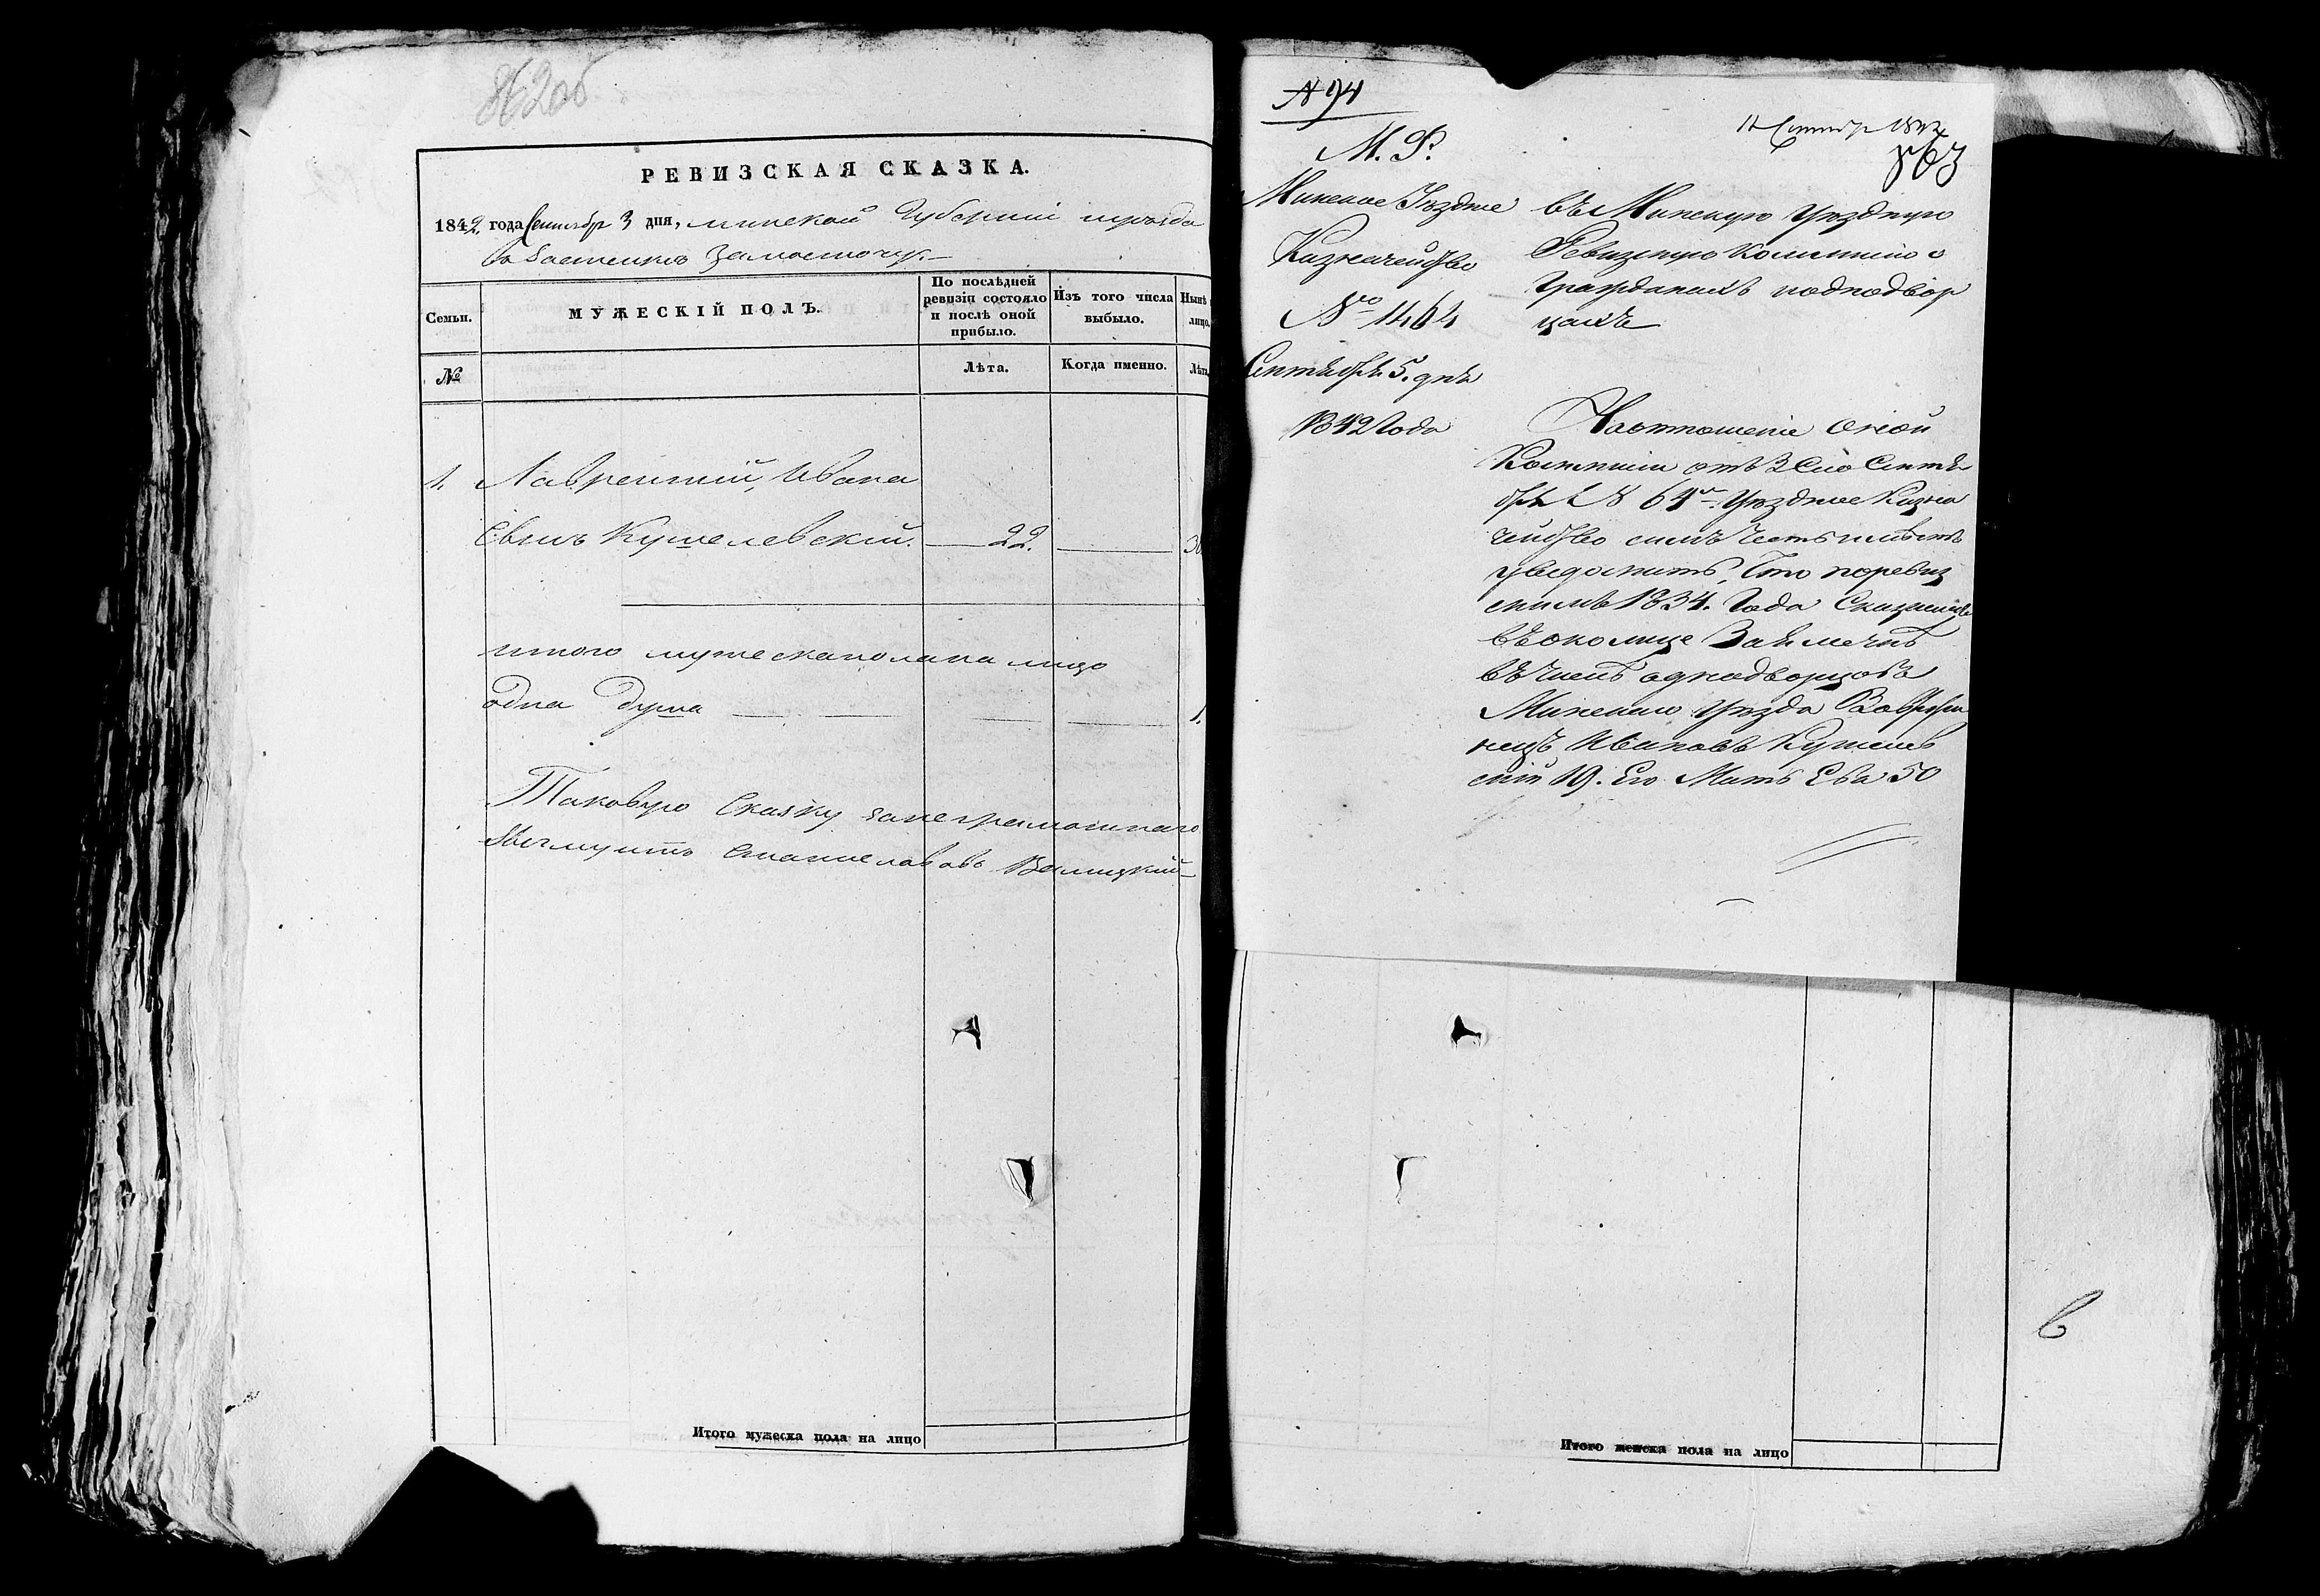 862об
РЕВИЗСКАЯ СКАЗКА.
1842 года Сентябр 3 дня, минской Губерніи
Замосточу
Семьи.
МУЖЕСКІЙ ПОЛЪ.
По послѣдней ревизіи состояло и послѣ оной прибыло.
Изъ того числа выбыло.
Нынѣ
лицо.
№
Лѣта.
Когда именно.
Лѣта
1. Лаврентій, Ивана
Сынъ Кушелевскій. 22. 30
итого мужеска пола на лицо
одна душа 1.
Таковую Сказку за неграмотнаго
Станиславовъ Валицкій
Итого мужеска пола на лицо
№ 94
863
М. Ф.
Минское Уѣздное
Казначейство
№ 1464
Сентября 5. дня
1842 Года
Въ Минскую Уѣздную
Ревизскую Коммисію о
Гражданахъ и однодвор
цахъ
На отношеніе Оной
Коммисіи отъ 3 Сего Сентя
бря № 64 Уѣздное Казна
чейство симъ честь имѣетъ
увѣдомить, Что по ревиз
скимъ 1834. Года Сказкамъ
въ околице
въ числѣ однодворцовъ
Минскаго Уѣзда
Ивановъ Кушелев
скій 19. Его Мать Ева 50
Итого женска пола на лицо
в